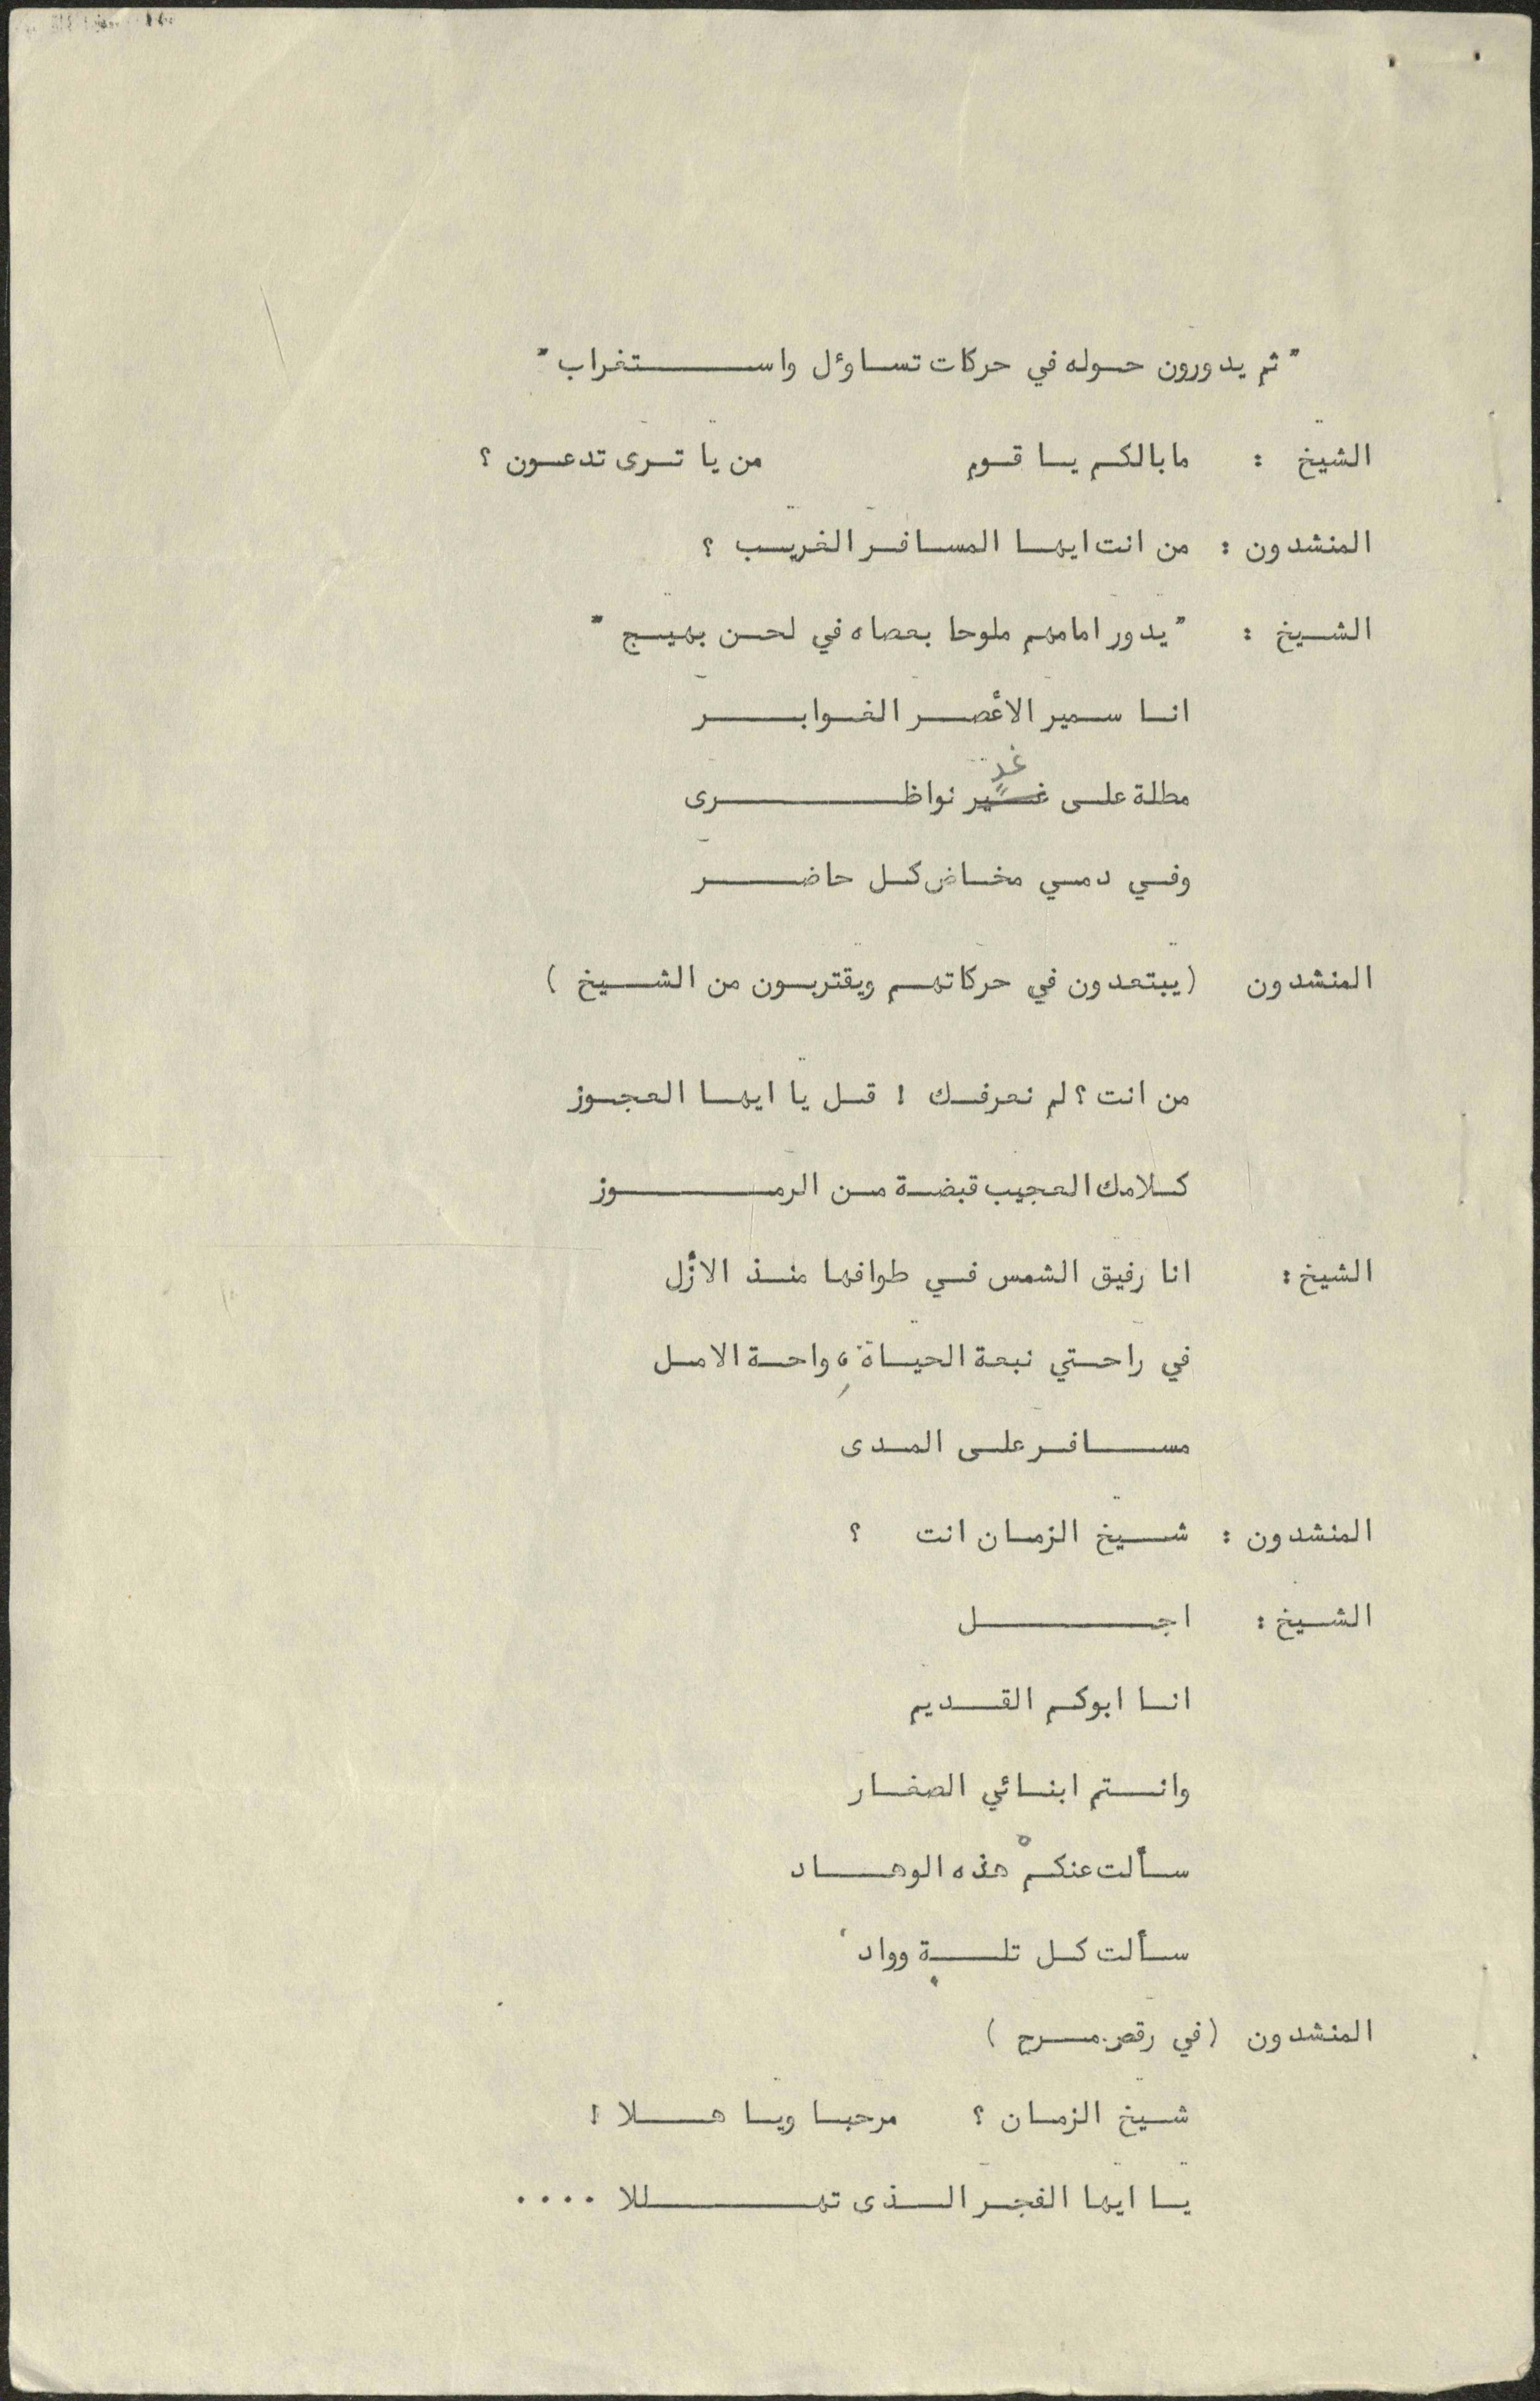 " ثم يدورون حوله في حركات تساؤل واستغراب "
الشيخ : مابالكم يا قوم من يا ترى تدعون ؟
المنشدون : من انت ايها المسافر الغريب ؟
الشيخ : " يدور امامهم ملوحا بعصاه في لحن بهيج "
انا سمير الأعصر الغوابر
غدٍ
مطلة على غير نواظرى
وفي دمي مخاض كل حاضر
المنشدون (يبتعدون في حركاتهم ويقتربون من الشيخ )
من انت ؟ لم نعرفك ! قل يا ايها العجوز
كلامك العجيب قبضة من الرموز
الشيخ : انا رفيق الشمس في طوافها منذ الأزل
في راحتي نبعة الحياة، واحة الامل
مسافر على المدى
المنشدون : شيخ الزمان انت ؟
الشيخ : اجل
انا ابوكم القديم
وانتم ابنائي الصغار
سألت عنكمْ هذه الوهاد
سألت كل تلةٍ وواد
المنشدون (في رقص مرح )
شيخ الزمان ؟ مرحبا ويا هلا !
يا ايها الفجر الذى تهللا ....